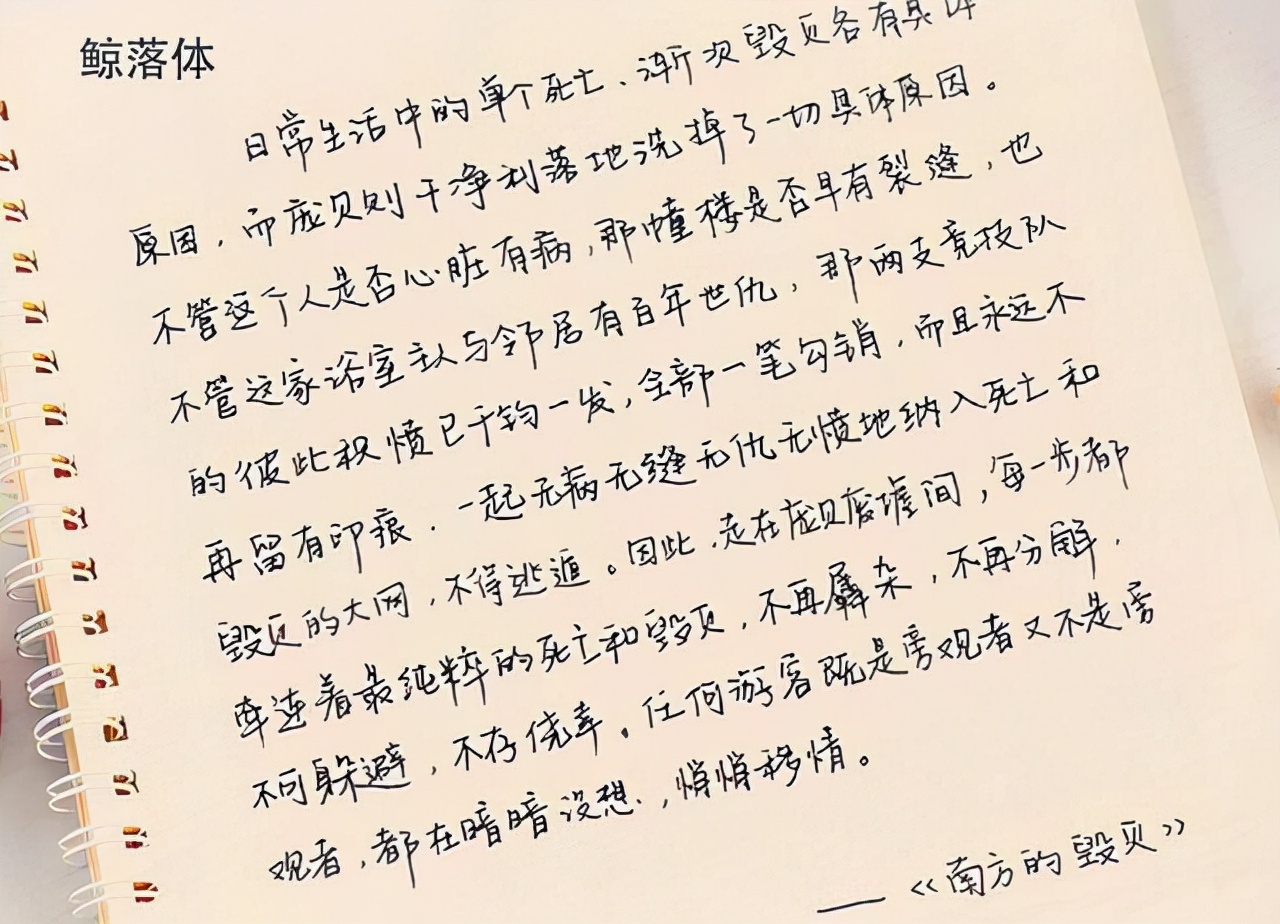 鲸落体
日常生活中的单个死亡、渐次毁灭各有具体
原因，而庞贝则干净利落地洗掉了一切具体原因。
不管这个人是否心脏有病，那幢楼是否早有裂缝，也
不管这家浴室主人与邻居有百年世仇，那两支竞技队
的彼此积愤已千钧一发，全部一笔勾销，而且永远不
再留有印痕，一起无病无缝无仇无愤地纳入死亡和
毁灭的大网，不得逃遁。因此，走在庞贝废墟间，每一步都
牵连着最纯粹的死亡和毁灭，不再羼杂，不再分解，
不可躲避，不存侥幸。任何游客既是旁观者又不是旁
观者，都在暗暗设想，悄悄移情。
——《南方的毁灭》